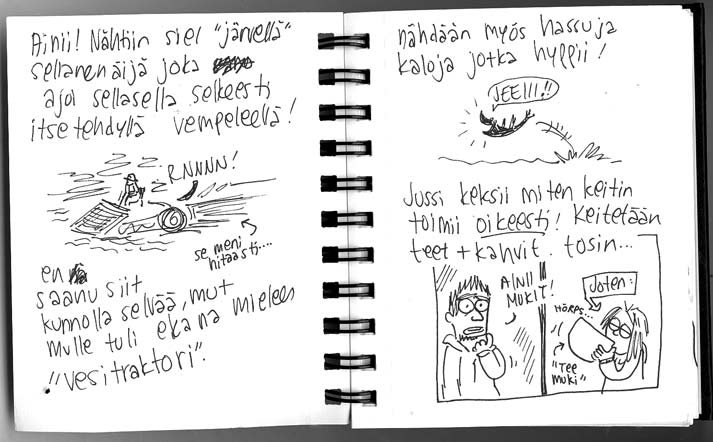 Ainii! Nähtiin siel "järvellä"
sellanen äijä joka
ajoi sellasella selkeesti
itse tehdyllä vempeleellä!
RNNNN!
se meni
hitaasti....
en
saanu siit
kunnolla selvää, mut
mulle tuli ekana mieleen
"vesitraktori".
nähdään myös hassuja
kaloja jotka hyppii!
JEEIII!!
Jussi keksii miten keitin
toimii oikeesti! Keitetään
teet + kahvit. tosin...
AINII
MUKIT!
Joten:
HÖRPS...
"Tee
muki"